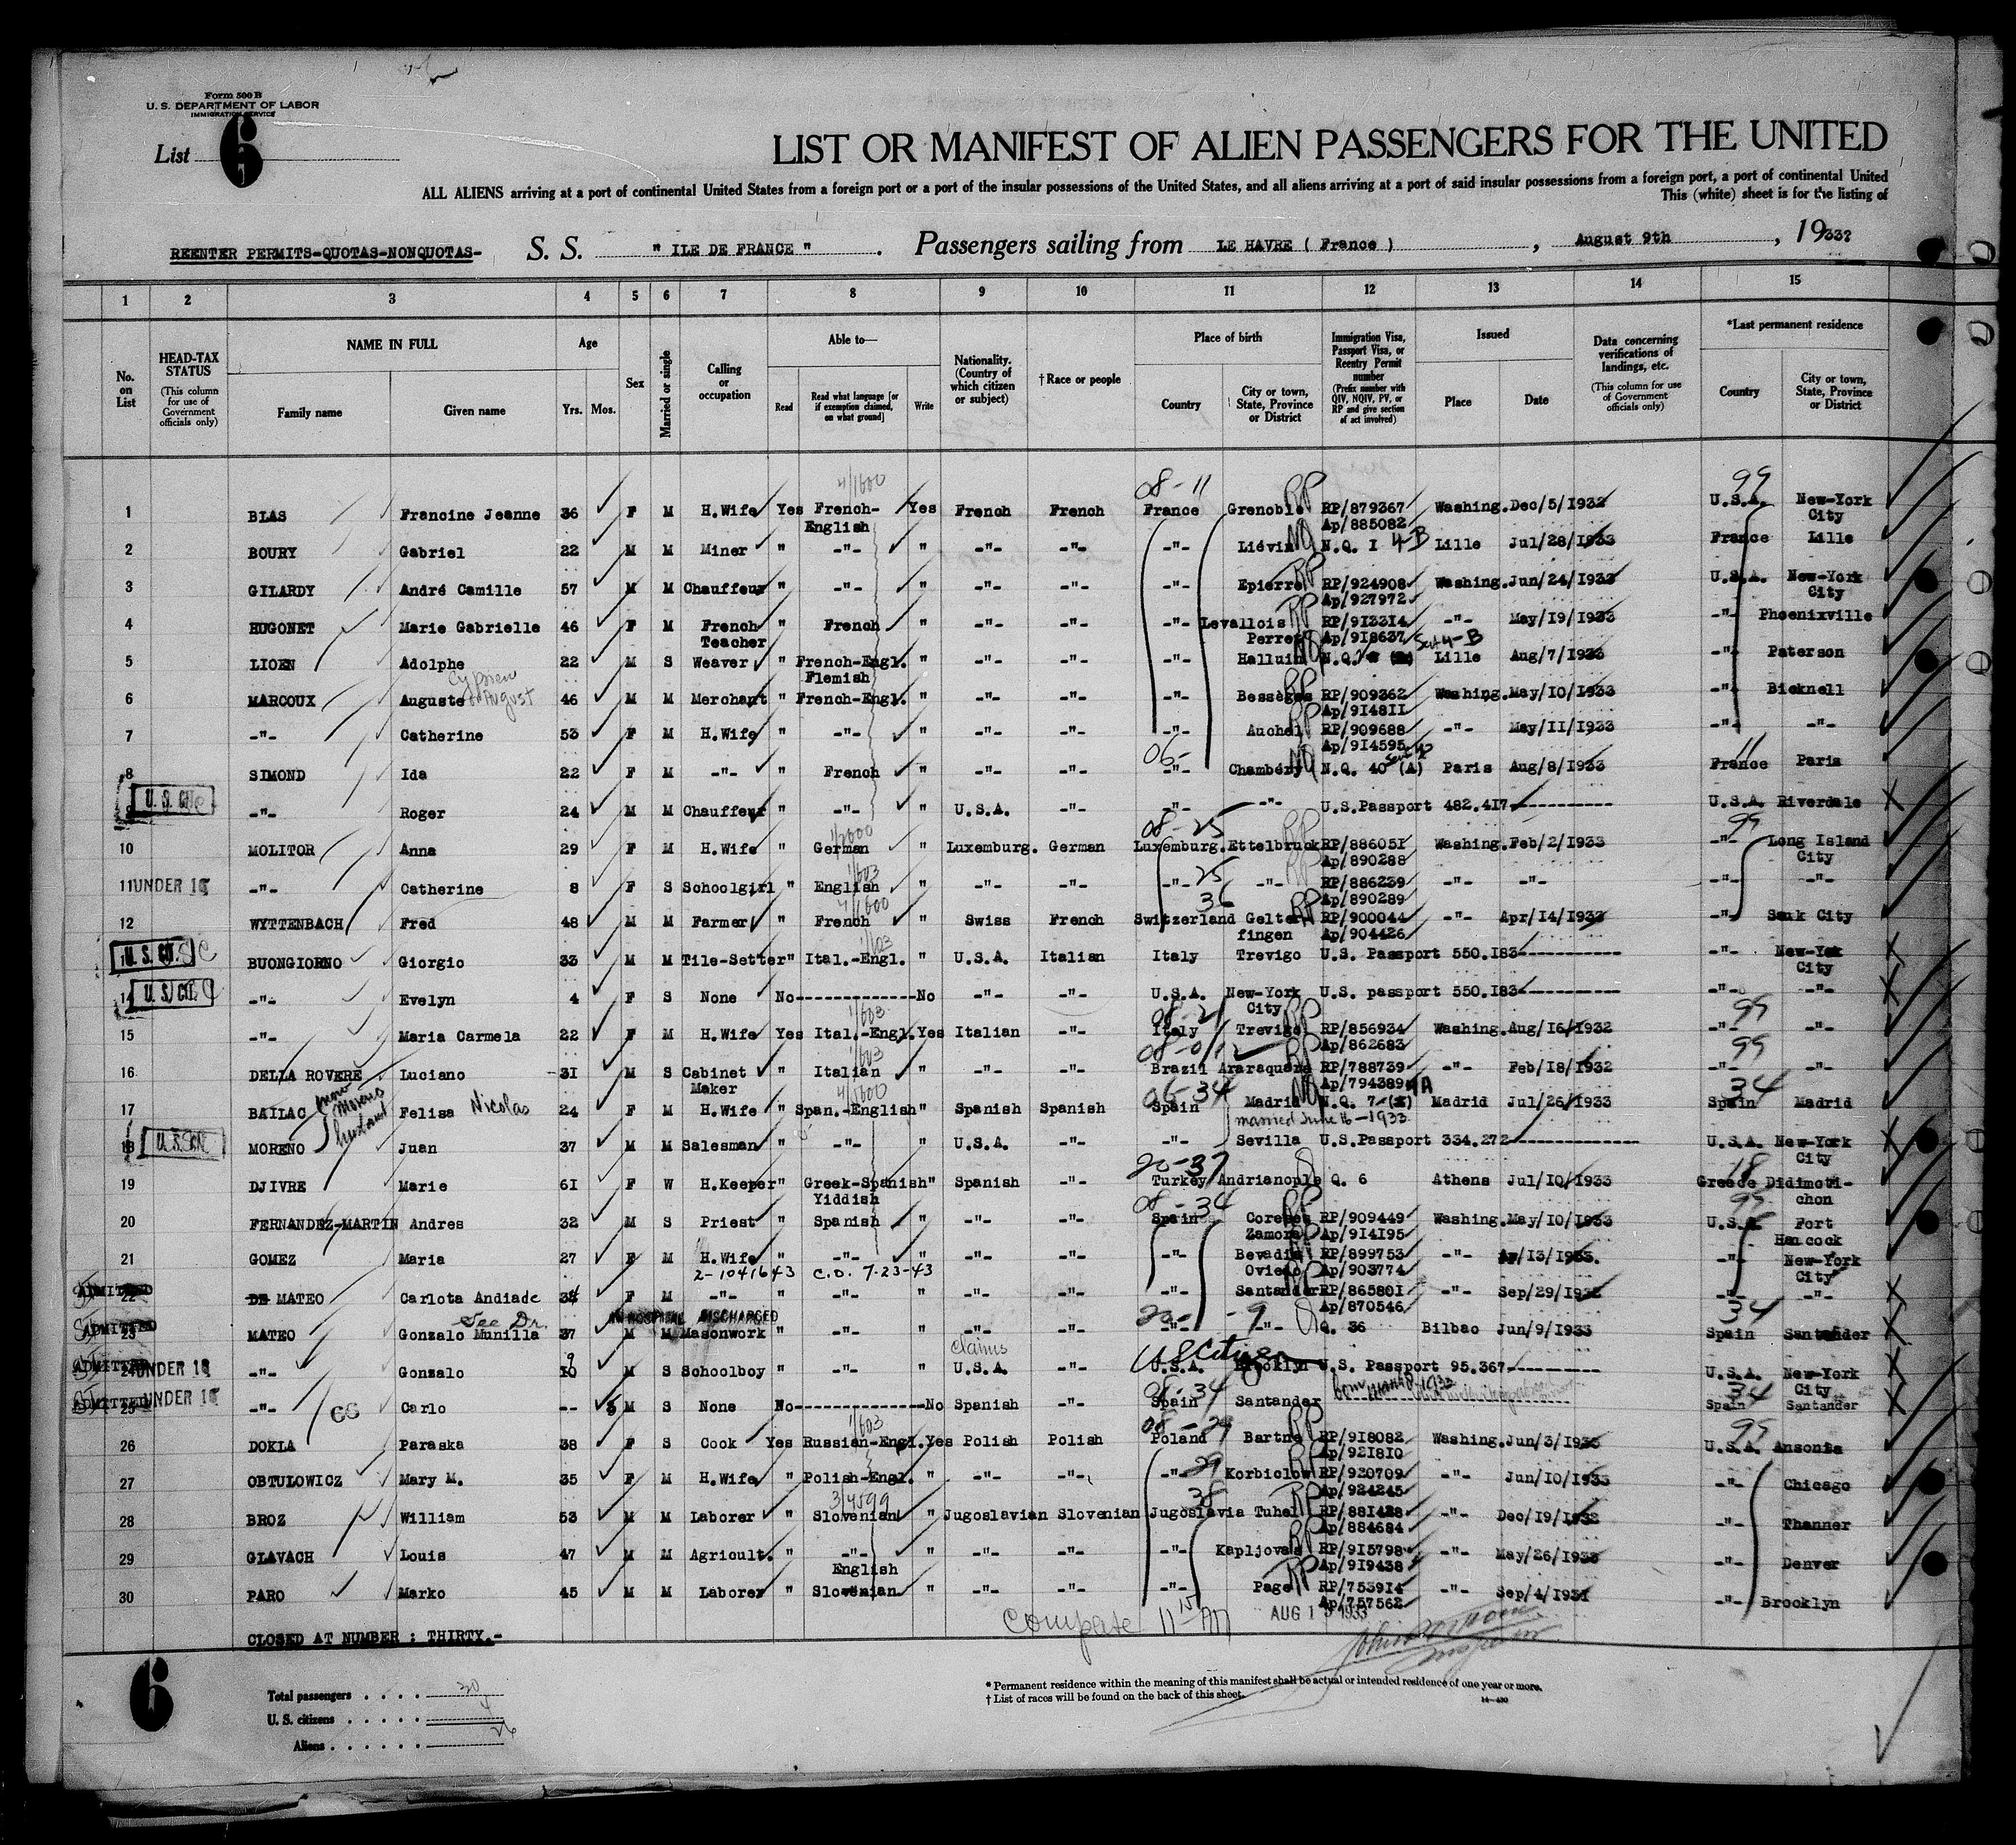 Form 500 B
U. S. DEPARTMENT OF LABOR
IMMIGRATION SERVICE
List 6
LIST OR MANIFEST OF ALIEN PASSENGERS FOR THE UNITED
ALL ALIENS arriving at a port of continental United States from a foreign port or a port of the insular possessions of the United States, and all aliens arriving at a port of said insular possessions from a foreign port, a port of continental United
This (white) sheet is for the listing of
REENTER PERMITS-QUOTAS-NONQUOTAS- S. S. " ILE DE FRANCE " . Passengers sailing from LE HAVRE ( France ) , August 9th , 1933
1 2 3 4 5 6 7 8 9 10 11 12 13 14 15
No. on List
HEAD-TAX STATUS (This column for use of Government officials only)
NAME IN FULL
Family name Given name
Age
Yrs. Mos.
Sex
Married or single
Calling or occupation
Able to—
Read Read what language [or if exemption claimed, on what ground] Write
Nationality. (Country of which citizen or subject)
† Race or people
Place of birth
Country City or town, State, Province or District
Immigration Visa, Passport Visa, or Reentry Permit number (Prefix number with QIV, NQIV, PV, or RP and give section of act involved)
Issued
Place Date
Data concerning verifications of landings, etc. (This column for use of Government officials only)
*Last permanent residence
Country City or town, State, Province or District
4/1600 08-11 RP 99
1 BLAS Francine Jeanne 36 F M H.Wife Yes French- Yes French French France Grenoble RP/879367 Washing. Dec/5/1932 U.S.A. New-York
English Ap/885082 City
2 BOURY Gabriel 22 M M Miner " -"- " -"- -"- -"- Liévin N.Q. I 4-B Lille Jul/28/1933 France Lille
3 GILARDY André Camille 57 M M Chauffeur " -"- " -"- -"- -"- Epierre RP/924908 Washing. Jun/24/1933 U.S.A. New-York
Ap/927972 City
4 HUGONET Marie Gabrielle 46 F M French " French " -"- -"- -"- Levallois RP/913314 -"- May/19/1933 -"- Phoenixville
Teacher Perret Ap/918637 Sect 4-B
5 LIOEN Adolphe 22 M S Weaver " French-Engl. " -"- -"- -"- Halluin N.Q. Lille Aug/7/1933 -"- Paterson
Cyprien Flemish
6 MARCOUX Auguste or August 46 M M Merchant " French-Engl. " -"- -"- -"- Bessèges RP/909362 Washing. May/10/1933 -"- Bicknell
Ap/914811
7 -"- Catherine 53 F M H.Wife " -"- " -"- -"- -"- Auchel RP/909688 -"- May/11/1933 -"- -"-
06- Ap/914595 11
8 SIMOND Ida 22 F M -"- " French " -"- -"- -"- Chambéry N.Q. 40 (A) Paris Aug/8/1933 France Paris
U. S. Cit.
9 -"- Roger 24 M M Chauffeur " -"- " U.S.A. -"- -"- -"- U.S.Passport 482.417----------- U.S.A. Riverdale
08-25 99
10 MOLITOR Anna 29 F M H.Wife " German " Luxemburg. German Luxemburg. Ettelbruck RP/886051 Washing. Feb/2/1933 -"- Long Island
1/603 Ap/890288 City
11 UNDER 16 -"- Catherine 8 F S Schoolgirl " English " -"- -"- -"- 25 -"- RP/886239 -"- -"- -"- -"-
36 Ap/890289
12 WYTTENBACH Fred 48 M M Farmer " French " Swiss French Switzerland Gelter RP/900044 -"- Apr/14/1933 -"- Sauk City
fingen Ap/904426
U. S. Cit.
13 BUONGIORNO Giorgio 33 M M Tile-Setter " Ital.-Engl. " U.S.A. Italian Italy Trevigo U.S. Passport 550.183------------ -"- New-York
City
U. S. Cit.
14 -"- Evelyn 4 F S None No-------------No -"- -"- U.S.A. New-York U.S. passport 550.183------------ -"- -"-
1/603 City 99
15 -"- Maria Carmela 22 F M H.Wife Yes Ital.-Engl. Yes Italian -"- Italy Trevigo RP/856934 Washing. Aug/16/1932 -"- -"-
1/603 Ap/862683 99
16 DELLA ROVERE Luciano 31 M S Cabinet " Italian " -"- -"- Brazil Araraquara RP/788739 -"- Feb/18/1932 -"- -"-
Maker 06-34 Ap/794389 34
17 BAILAC now Moreno husband Felisa Nicolas 24 F M H.Wife " Span.-English " Spanish Spanish Spain Madrid N.Q. 7- Madrid Jul/26/1933 Spain Madrid
married June 16-1933
18 MORENO Juan 37 M M Salesman " -"- " U.S.A. -"- -"- Sevilla U.S.Passport 334.272--------------- U.S.A. New-York
20-37 City
19 DJIVRE Marie 61 F W H.Keeper " Greek-Spanish " Spanish -"- Turkey Andrianople Q. 6 Athens Jul/10/1933 Greece Didimoti-
Yiddish 08-34 chon
20 FERNANDEZ-MARTIN Andres 32 M S Priest " Spanish " -"- -"- Spain Coreses RP/909449 Washing. May/10/1933 U.S.A. Fort
Zamora Ap/914195 Hancock
21 GOMEZ Maria 27 F M H.Wife " -"- " -"- -"- -"- RP/899753 -"- 13/1933. -"- New-York
2-1041643 C.O. 7-23-43 Oviedo Ap/903774 City
ADMITTED
22 DE MATEO Carlota Andiade F M -"- " -"- " -"- -"- -"- Santander RP/865801 -"- Sep/29/1932 -"- -"-
See Dr. IN HOSPITAL DISCHARGED Ap/870546 34
ADMITTED
23 MATEO Gonzalo Munilla 37 M M Masonwork " -"- " -"- -"- -"- -"- Q. 36 Bilbao Jun/9/1933 Spain Santander
claims US Citizen
ADMITTED
24 UNDER 16 -"- Gonzalo 10 M S Schoolboy " -"- " U.S.A. -"- U.S.A. Brooklyn U.S. Passport 95.367----------- U.S.A. New-York
City
ADMITTED
25 UNDER 16 -"- Carlo -- M S None No---------------No Spanish -"- Spain Santander Spain Santander
1/603 99
26 DOKLA Paraska 38 F S Cook Yes Russian-Engl. Yes Polish Polish Poland Bartne RP/918082 Washing. Jun/3/1933 U.S.A. Ansonia
Ap/921810
27 OBTULOWICZ Mary M. 35 F M H.Wife " Polish-Engl. " -"- -"- -"- Korbielow RP/920709 -"- Jun/10/1933 -"- Chicago
38 Ap/924245
28 BROZ William 53 M M Laborer " Slovenian " Jugoslavian Slovenian Jugoslavia Tuhel RP/881428 -"- Dec/19/1932 -"- Thanner
Ap/884684
29 GLAVACH Louis 47 M M Agricult. " -"- " -"- -"- -"- Kapljova RP/915798 -"- May/26/1933 -"- Denver
English Ap/919438
30 PARO Marko 45 M M Laborer " Slovenian " -"- -"- -"- Page RP/753914 -"- Sep/4/1931 -"- Brooklyn
Ap/757562
11 15 AM AUG 15 1933
CLOSED AT NUMBER : THIRTY.-
6
Total passengers . . . . 30
U. S. citizens . . . . . 4
Aliens . . . . . . 26
* Permanent residence within the meaning of this manifest shall be actual or intended residence of one year or more.
† List of races will be found on the back of this sheet.